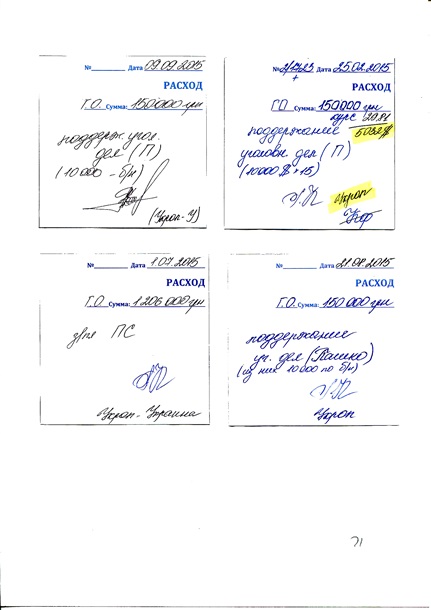 № Дата 09.09.2015
РАСХОД
Г.О. Сумма: 150000 грн
поддерж. угол.
дел (П)
(10 000 - б/н)
(Укроп - У)
№ Дата 25.02.2015
РАСХОД
Г.О. Сумма: 150000 грн
курс
поддержание
уголовн. дел (П)
Укроп
№ Дата 1.07.2015
РАСХОД
Г.О. Сумма: 1 206 000 грн
ПС
Укроп - Украина
№ Дата 21.08.2015
РАСХОД
Г.О. Сумма: 150 000 грн
поддержание
уг. дел
(из них 10 000 по б/н)
Укроп
71